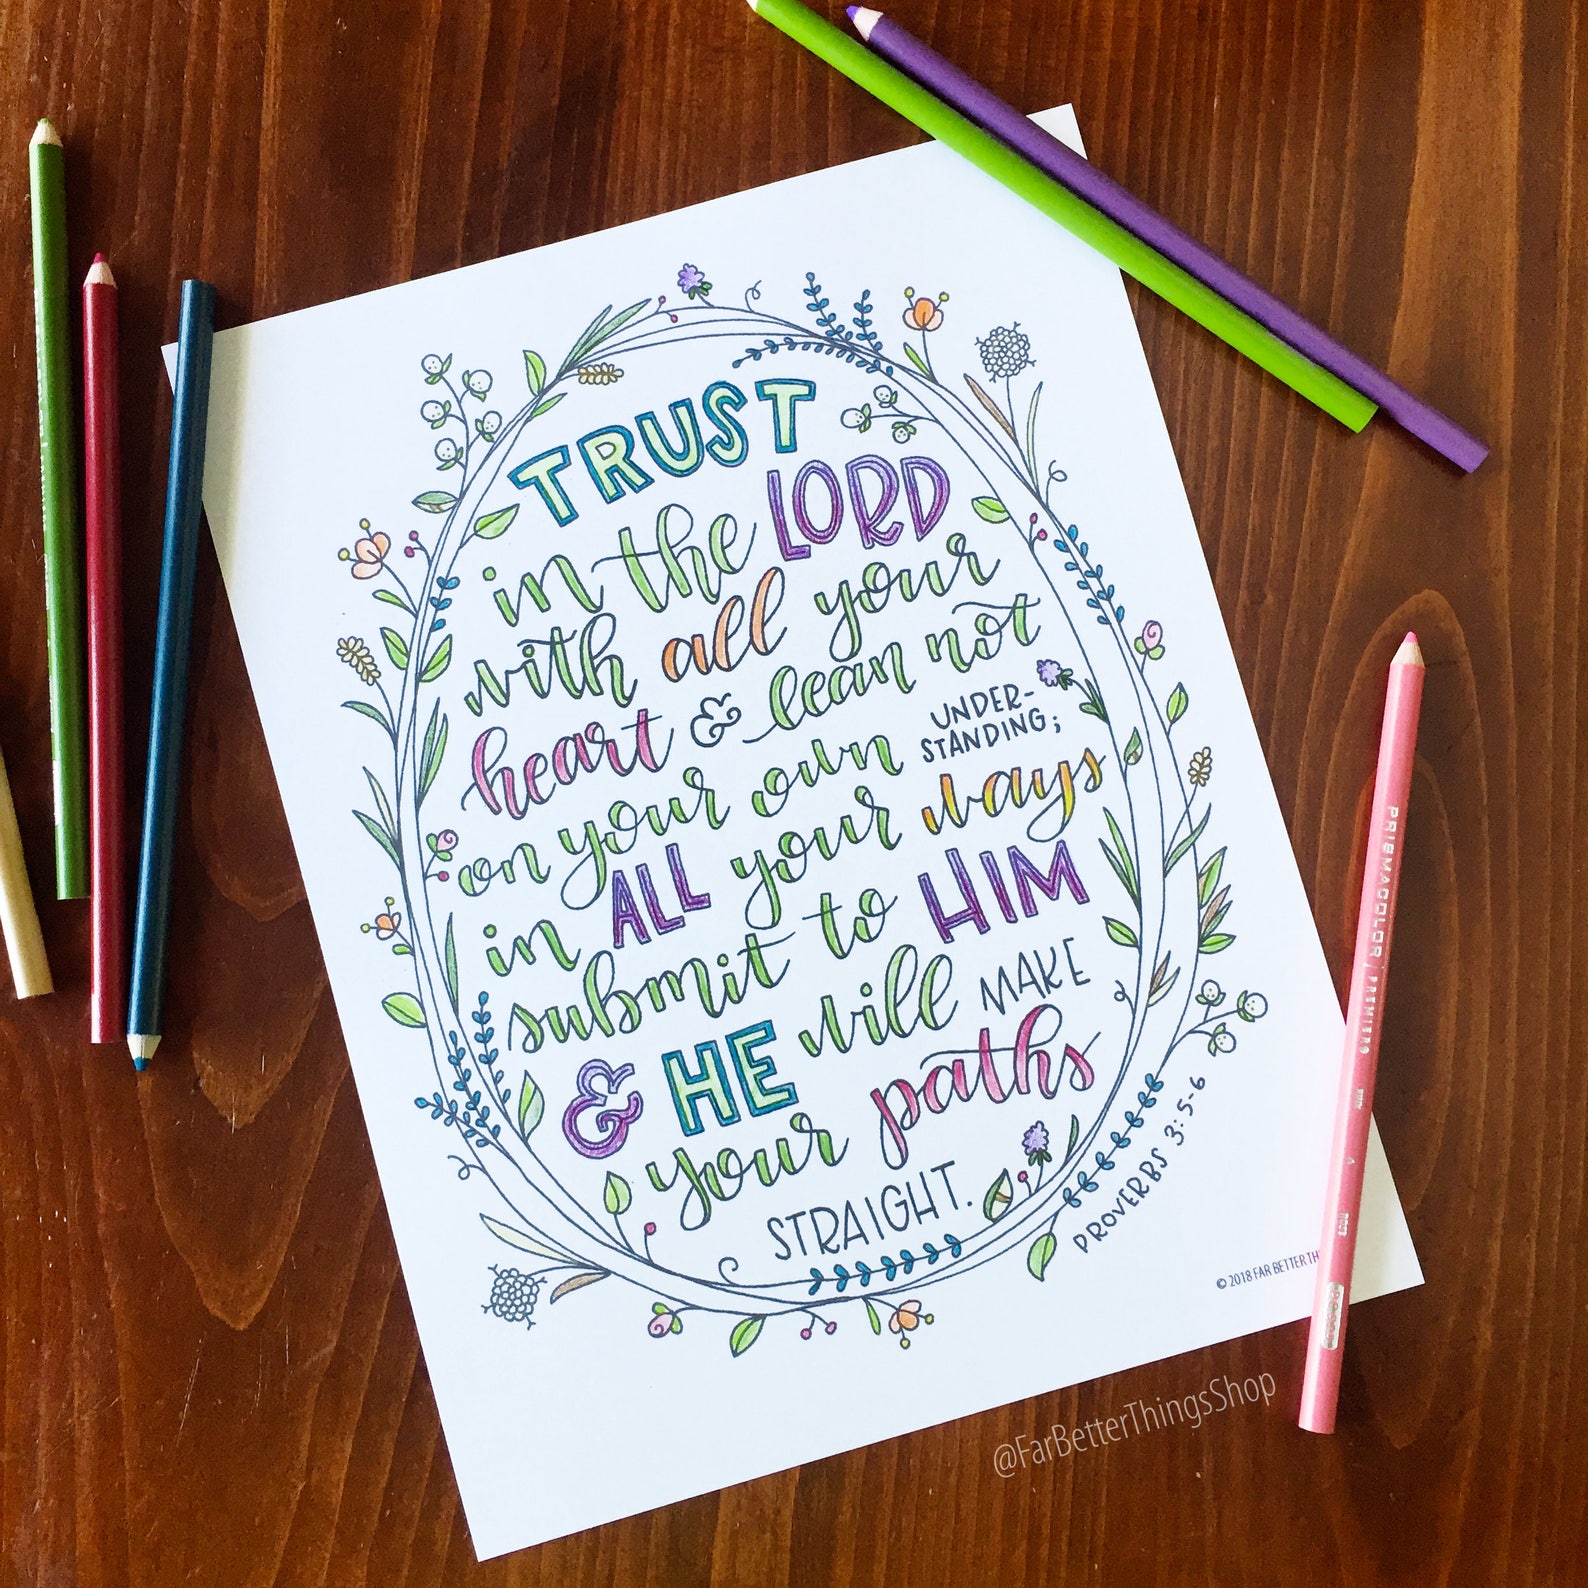 TRUST
in the LORD
with all your
heart & lean not
on your own UNDER-
STANDING;
in ALL your ways
submit to HIM
& HE will MAKE
your paths
STRAIGHT.
PROVERBS 3:5-6
© 2018 FAR BETTER
@FarBetterThingsShop
PRISMACOLOR PREMIER